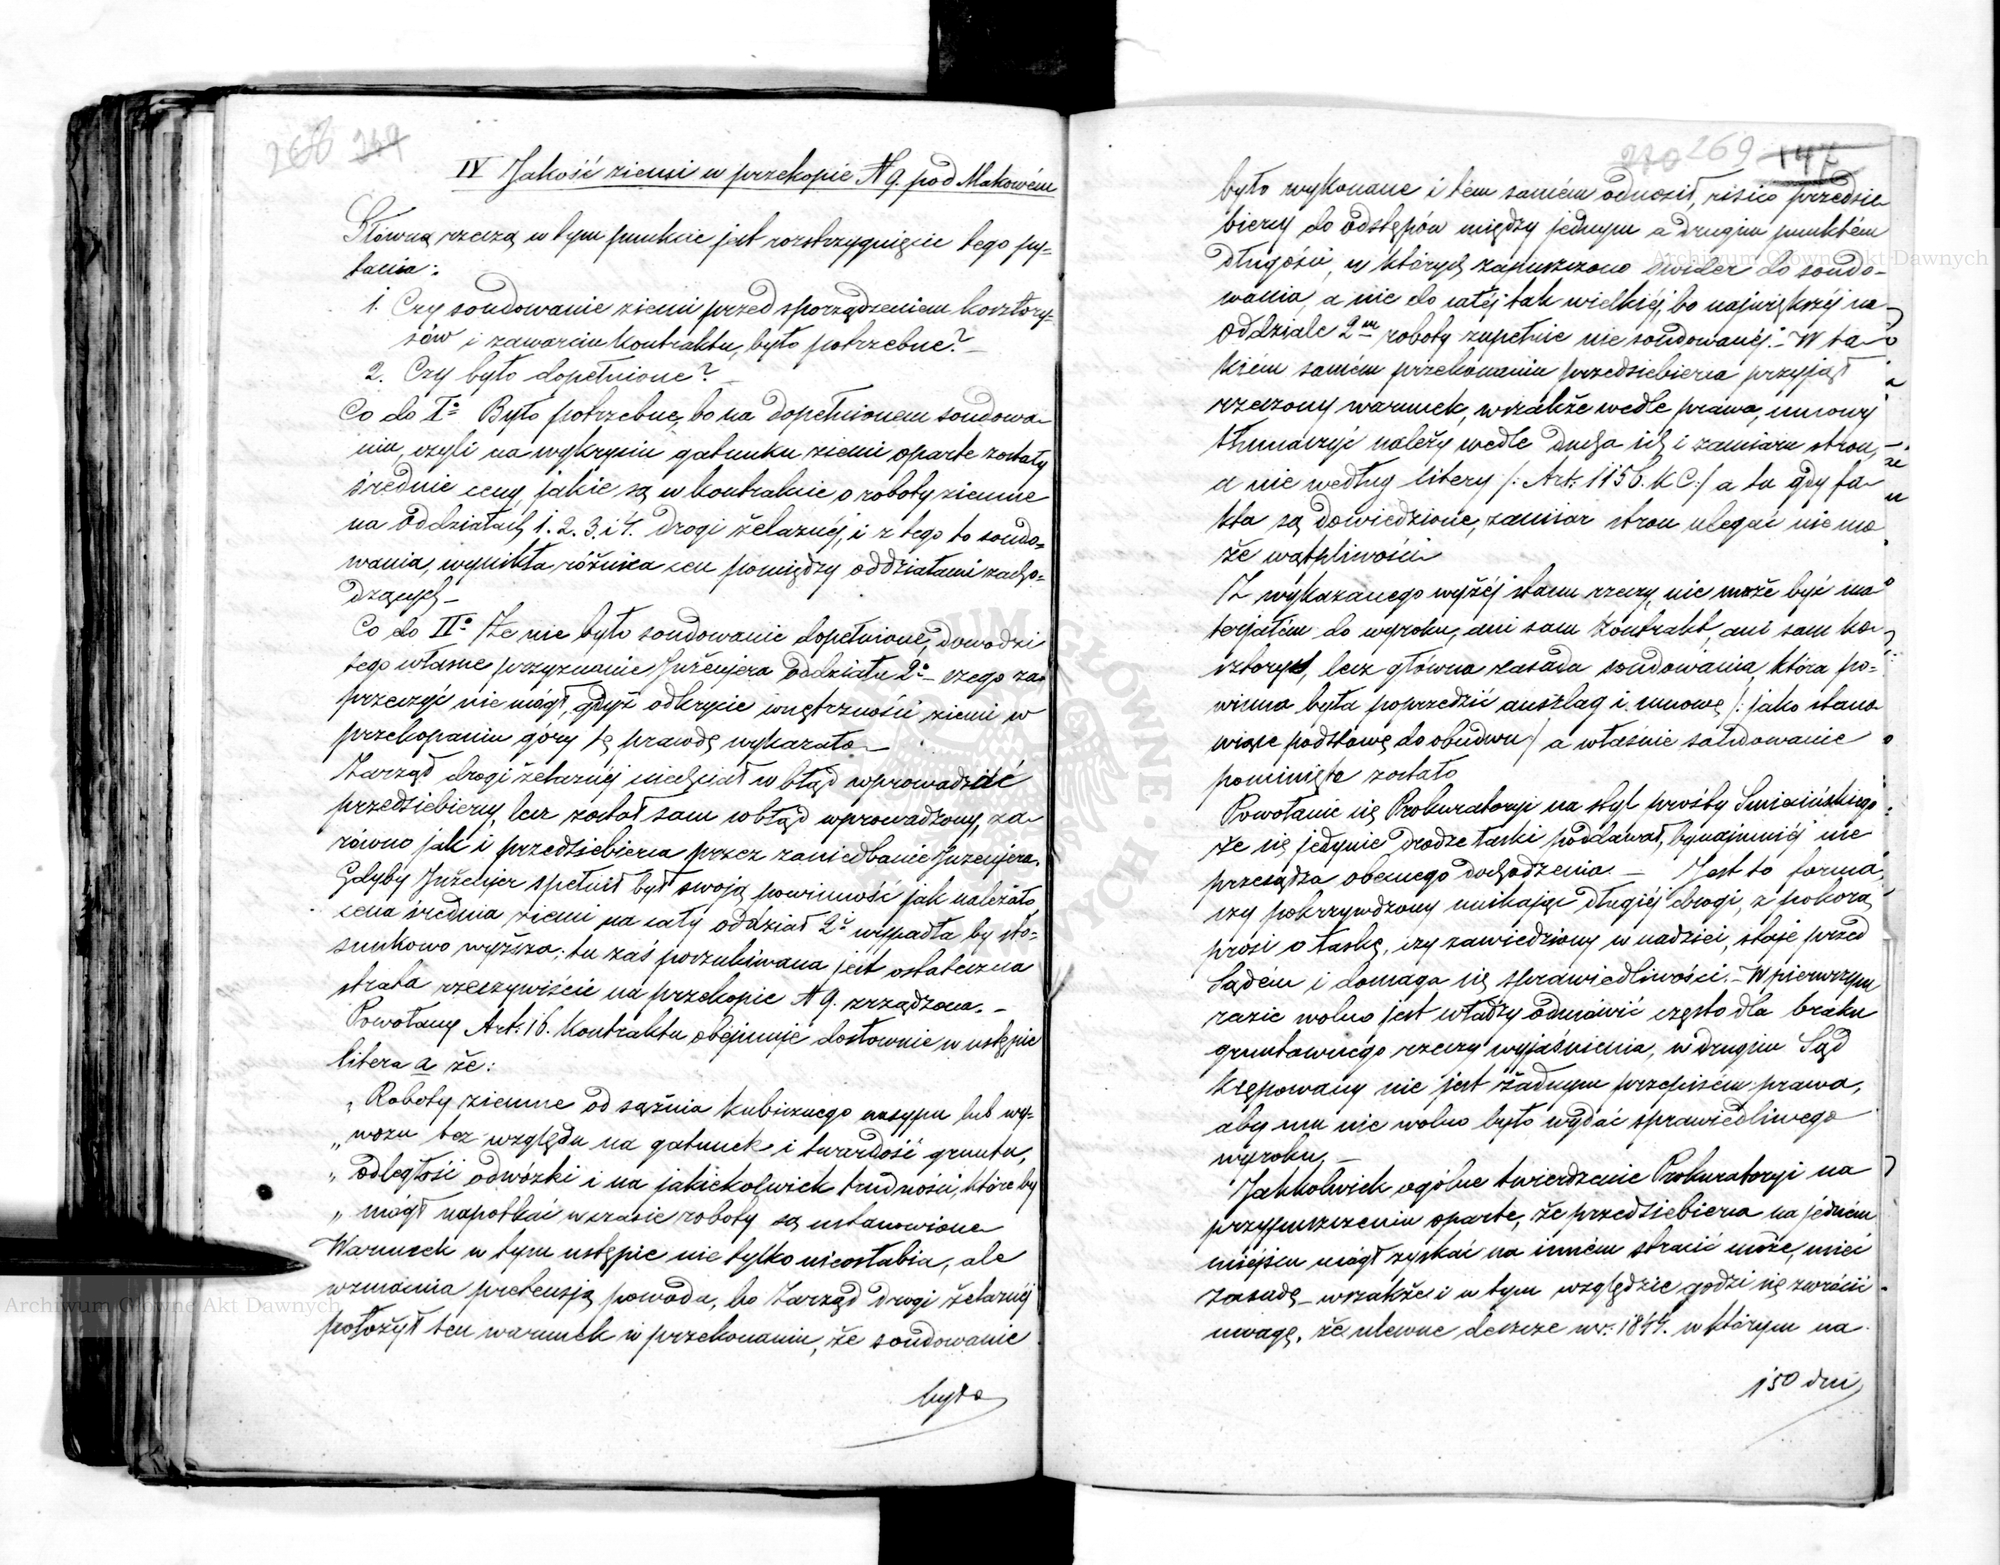 268 249
IV Jakość ziemi w przekopie N 9. pod Makowém
Główną rzeczą w tym punkcie jest rozstrzygnięcie tego py-
tania:
1. Czy sondowanie ziemi przed sporządzeniem kosztory-
sów i zawarciu kontraktu, było potrzebne? –
2. Czy było dopełnione? –
Co do I° Było potrzebne, bo na dopełnionem sondowa-
niu, czyli na wykryciu gatunku ziemi oparte zostały
średnie ceny, jakie są w kontrakcie o roboty ziemne
na oddziałach 1. 2. 3. i 4. Drogi żelaznéj, i z tego to sondo-
wania, wynikła różnica cen pomiędzy oddziałami zacho-
dzących –
Co do II° Że nie było sondowanie dopełnione, dowodzi
tego własne przyznanie Inżenjera Oddziału 2° – czego za-
przeczyć nie mógł, gdyż odkrycie wnętrzności ziemi w
przekopaniu góry tę prawdę wykazało –
Zarząd drogi żelaznéj niechciał w błąd wprowadzić
przedsiebiercy, lecz został sam w błąd wprowadzony, za-
równo jak i przedsiebierca przez zaniedbanie Inżenjera.
Gdyby Inżenjer spełnił był swoją powinność jak należało
cena średnia ziemi na cały oddział 2i wypadła by sto-
sunkowo wyższa; tu zaś poszukiwana jest ostateczna
strata rzeczywiście na przekopie N 9. zrządzona. –
Powołany Art: 16. Kontraktu obejmuje dosłownie w ustępie
litera a że:
„ Roboty ziemne od sążnia kubicznego nasypu lub wy-
„ wozu bez względu na gatunek i twardość gruntu,
„ odległości odwózki i na jakiekolwiek trudności, które by
„ mógł napotkać w czasie roboty są ustanowione
Warunek w tym ustępie nie tylko nieosłabia, ale
wzmacnia pretensją powoda, bo Zarząd Drogi Żelaznéj
położył ten warunek w przekonaniu, że sondowanie
było
270 269 147
było wykonane i tém samém odnosił risico przedsie-
biercy do odstępów między jednym a drugim punktém
długości, w których zapuszczono świder do sondo-
wania, a nie do całéj tak wielkiéj, bo największéj na
oddziale 2m roboty zupełnie nie sondowanéj. – W ta-
kiém samém przekonaniu przedsiebierca przyjął
rzeczony warunek, wszakże wedle prawa, umowy
tłumaczyć należy wedle ducha ich i zamiaru stron,
a nie według litery /: Art: 1156. K C :/ a tu gdy fa-
kta są dowiedzione, zamiar stron ulegać nie mo-
że wątpliwości
Z wykazanego wyżéj stanu rzeczy, nie może być ma-
terjałem do wyroku, ani sam kontrakt, ani sam ko-
sztorys, lecz główna zasada sondowania, która po-
winna była poprzedzić anszlag i umowę /: jako stano-
wiące podstawę do obudwu / a właśnie sondowanie
pominięte zostało
Powołanie się Prokuratoryi na styl prośby Smiecińskiego
że się jedynie drodze łaski poddawał, bynajmniéj nie
przesądza obecnego dochodzenia. – Jest to forma,
czy pokrzywdzony unikając długiéj drogi, z pokorą
prosi o łaskę, czy zawiedziony w nadziei, staje przed
Sądem i domaga się sprawiedliwości. – W pierwszym
razie wolno jest władzy odmówić często dla braku
gruntownego rzeczy wyjaśnienia, w drugim Sąd
krępowany nie jest żadnym przepisem prawa,
aby mu nie wolno było wydać sprawiedliwego
wyroku. –
Jakkolwiek ogólne twierdzenie Prokuratoryi na
przypuszczeniu oparte, że przedsiebierca na jedném
miejscu mógł zyskać na inném stracić może, mieć
zasadę – wszakże i w tym względzie godzi się zwrócić
uwagę, że ulewne deszcze w r: 1844. w którym na
150 dni
Archiwum Główne Akt Dawnych
Archiwum Główne Akt Dawnych